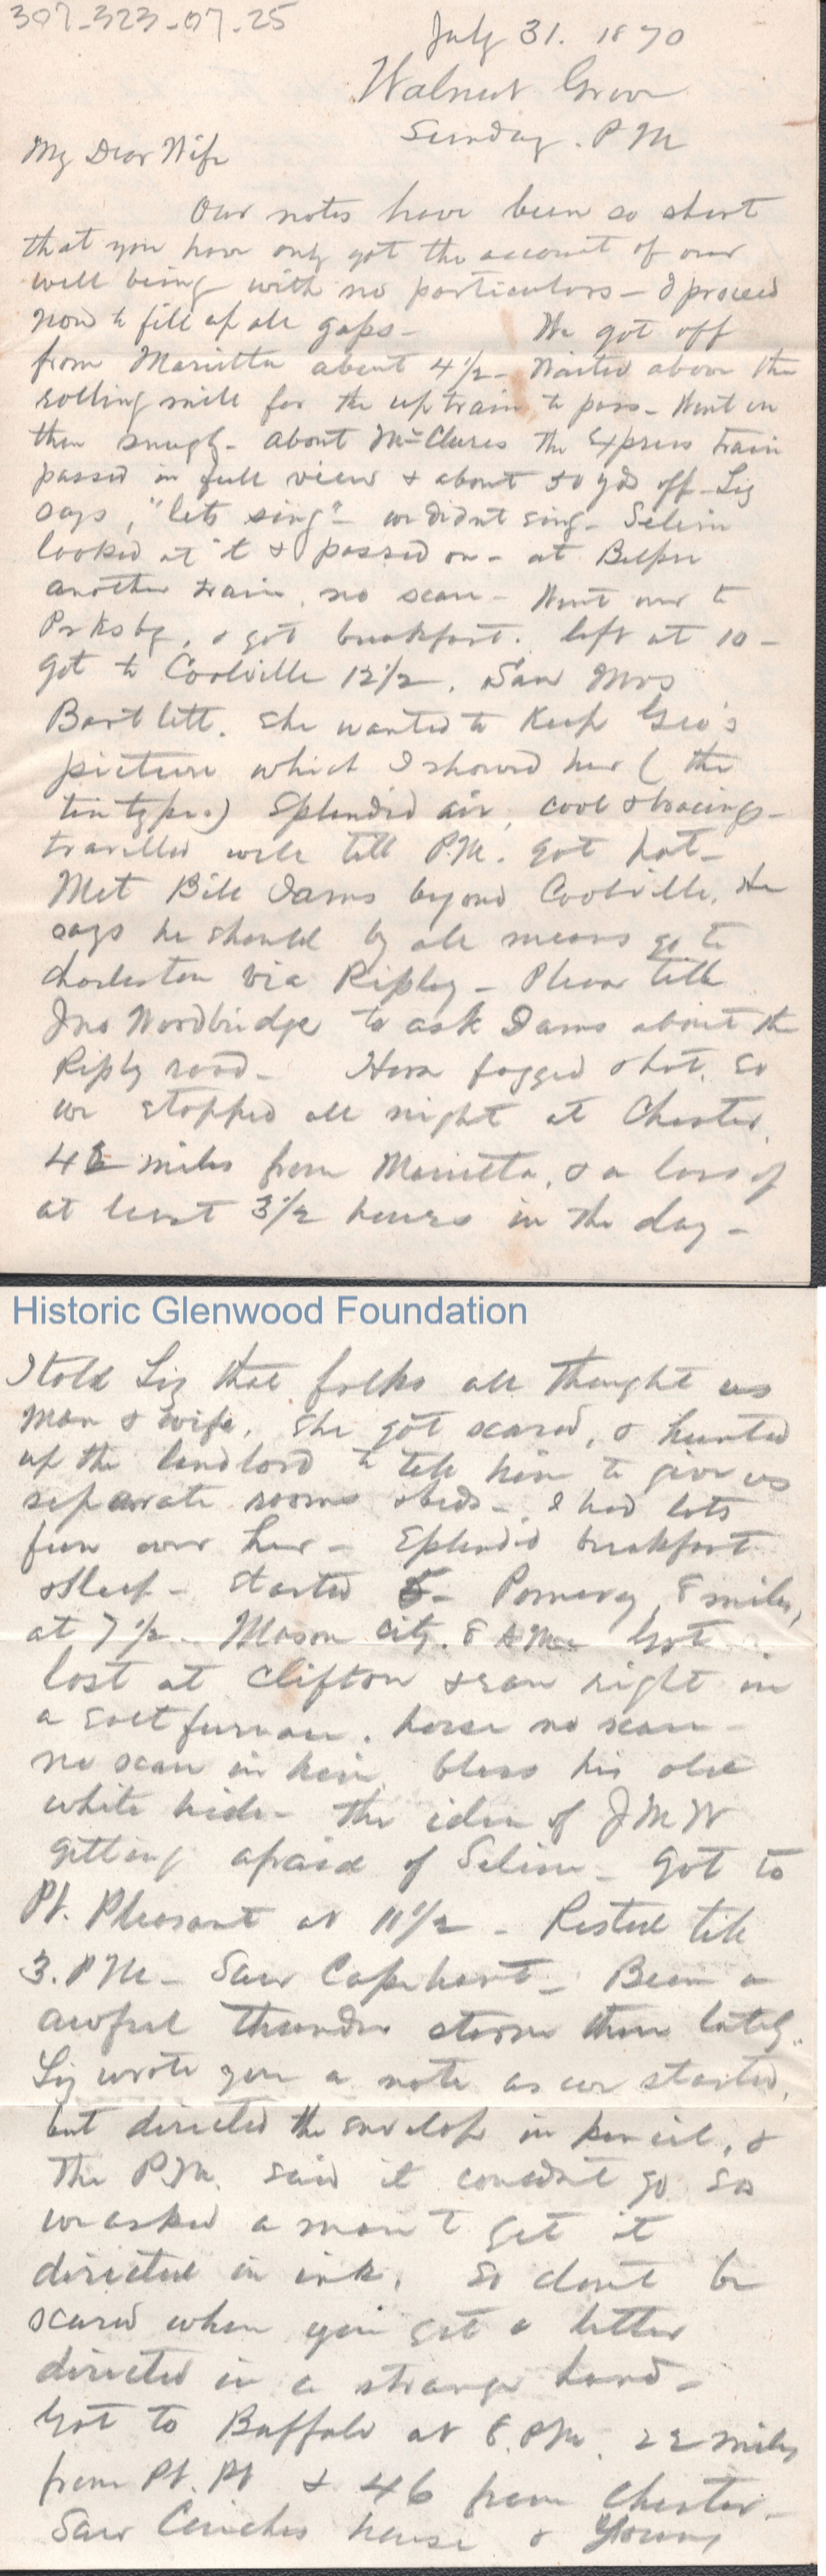 307-323-07-25
July 31. 1870
Walnut Grove
Sunday. P M
My Dear Wife
Our notes have been so short
that you have only got the account of our
well being with no particulars - I proceed
now to fill up all gaps - We got off
from Marietta about 4 1/2 - Waited above the
rolling mill for the up train to pass - Went on
then snugly - about McClures the Express train
passed in full view & about 50 yds off - Liz
says, "lets sing" - we didnt sing - Selim
looked at it & passed on - at Belpre
another train, no scare - Went over to
Prksbg, & got breakfast. left at 10 -
got to Coolville 12 1/2. Saw Mrs
Bartlett. She wanted to keep Geo's
picture which I showed her (the
tintype.) Splendid air, cool & bracing -
travelled well till P.M. got hot -
Met Bill Daws beyond Coolville. He
says he should by all means go to
Charleston via Ripley - Please tell
Jno Woodbridge to ask Daws about the
Riply road - Horse fagged & hot. So
we stopped all night at Chester,
42 miles from Marietta, & a loss of
at least 3 1/2 hours in the day -
Historic Glenwood Foundation
I told Liz that folks all thought us
man & wife. She got scared, & hunted
up the landlord to tell him to give us
separate rooms & beds - I had lots
fun over her - Splendid breakfast
& sleep - Started 5 - Pomeroy, 8 miles,
at 7 1/2 - Mason City. 8 AM Got
lost at Clifton & ran right in
a salt furnace. horse no scare -
no scare in him, bless his old
white hide - the idea of J M W
getting afraid of Selim - Got to
Pt. Pleasant at 11 1/2 - Rested till
3. P M - Saw Capehart - Been a
awful thunder storm there lately.
Liz wrote you a note as we started,
but directed the envelop in pencil, &
the P.M. said it couldnt go so
we asked a man to get it
directed in ink. So dont be
scared when you get a letter
directed in a strange hand -
Got to Buffalo at 8. P M. 22 miles
from Pt. Pt & 46 from Chester -
Saw house & Young